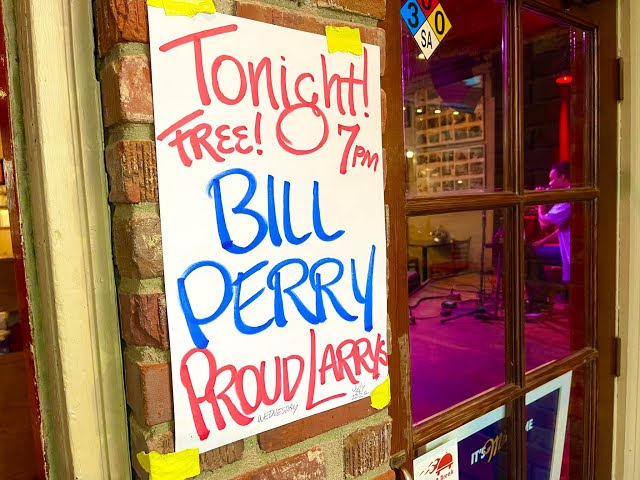 Tonight!
FREE! 7pm
BILL
PERRY
PROUD LARRYS
WEDNESDAY
3 0
SA
IT'S